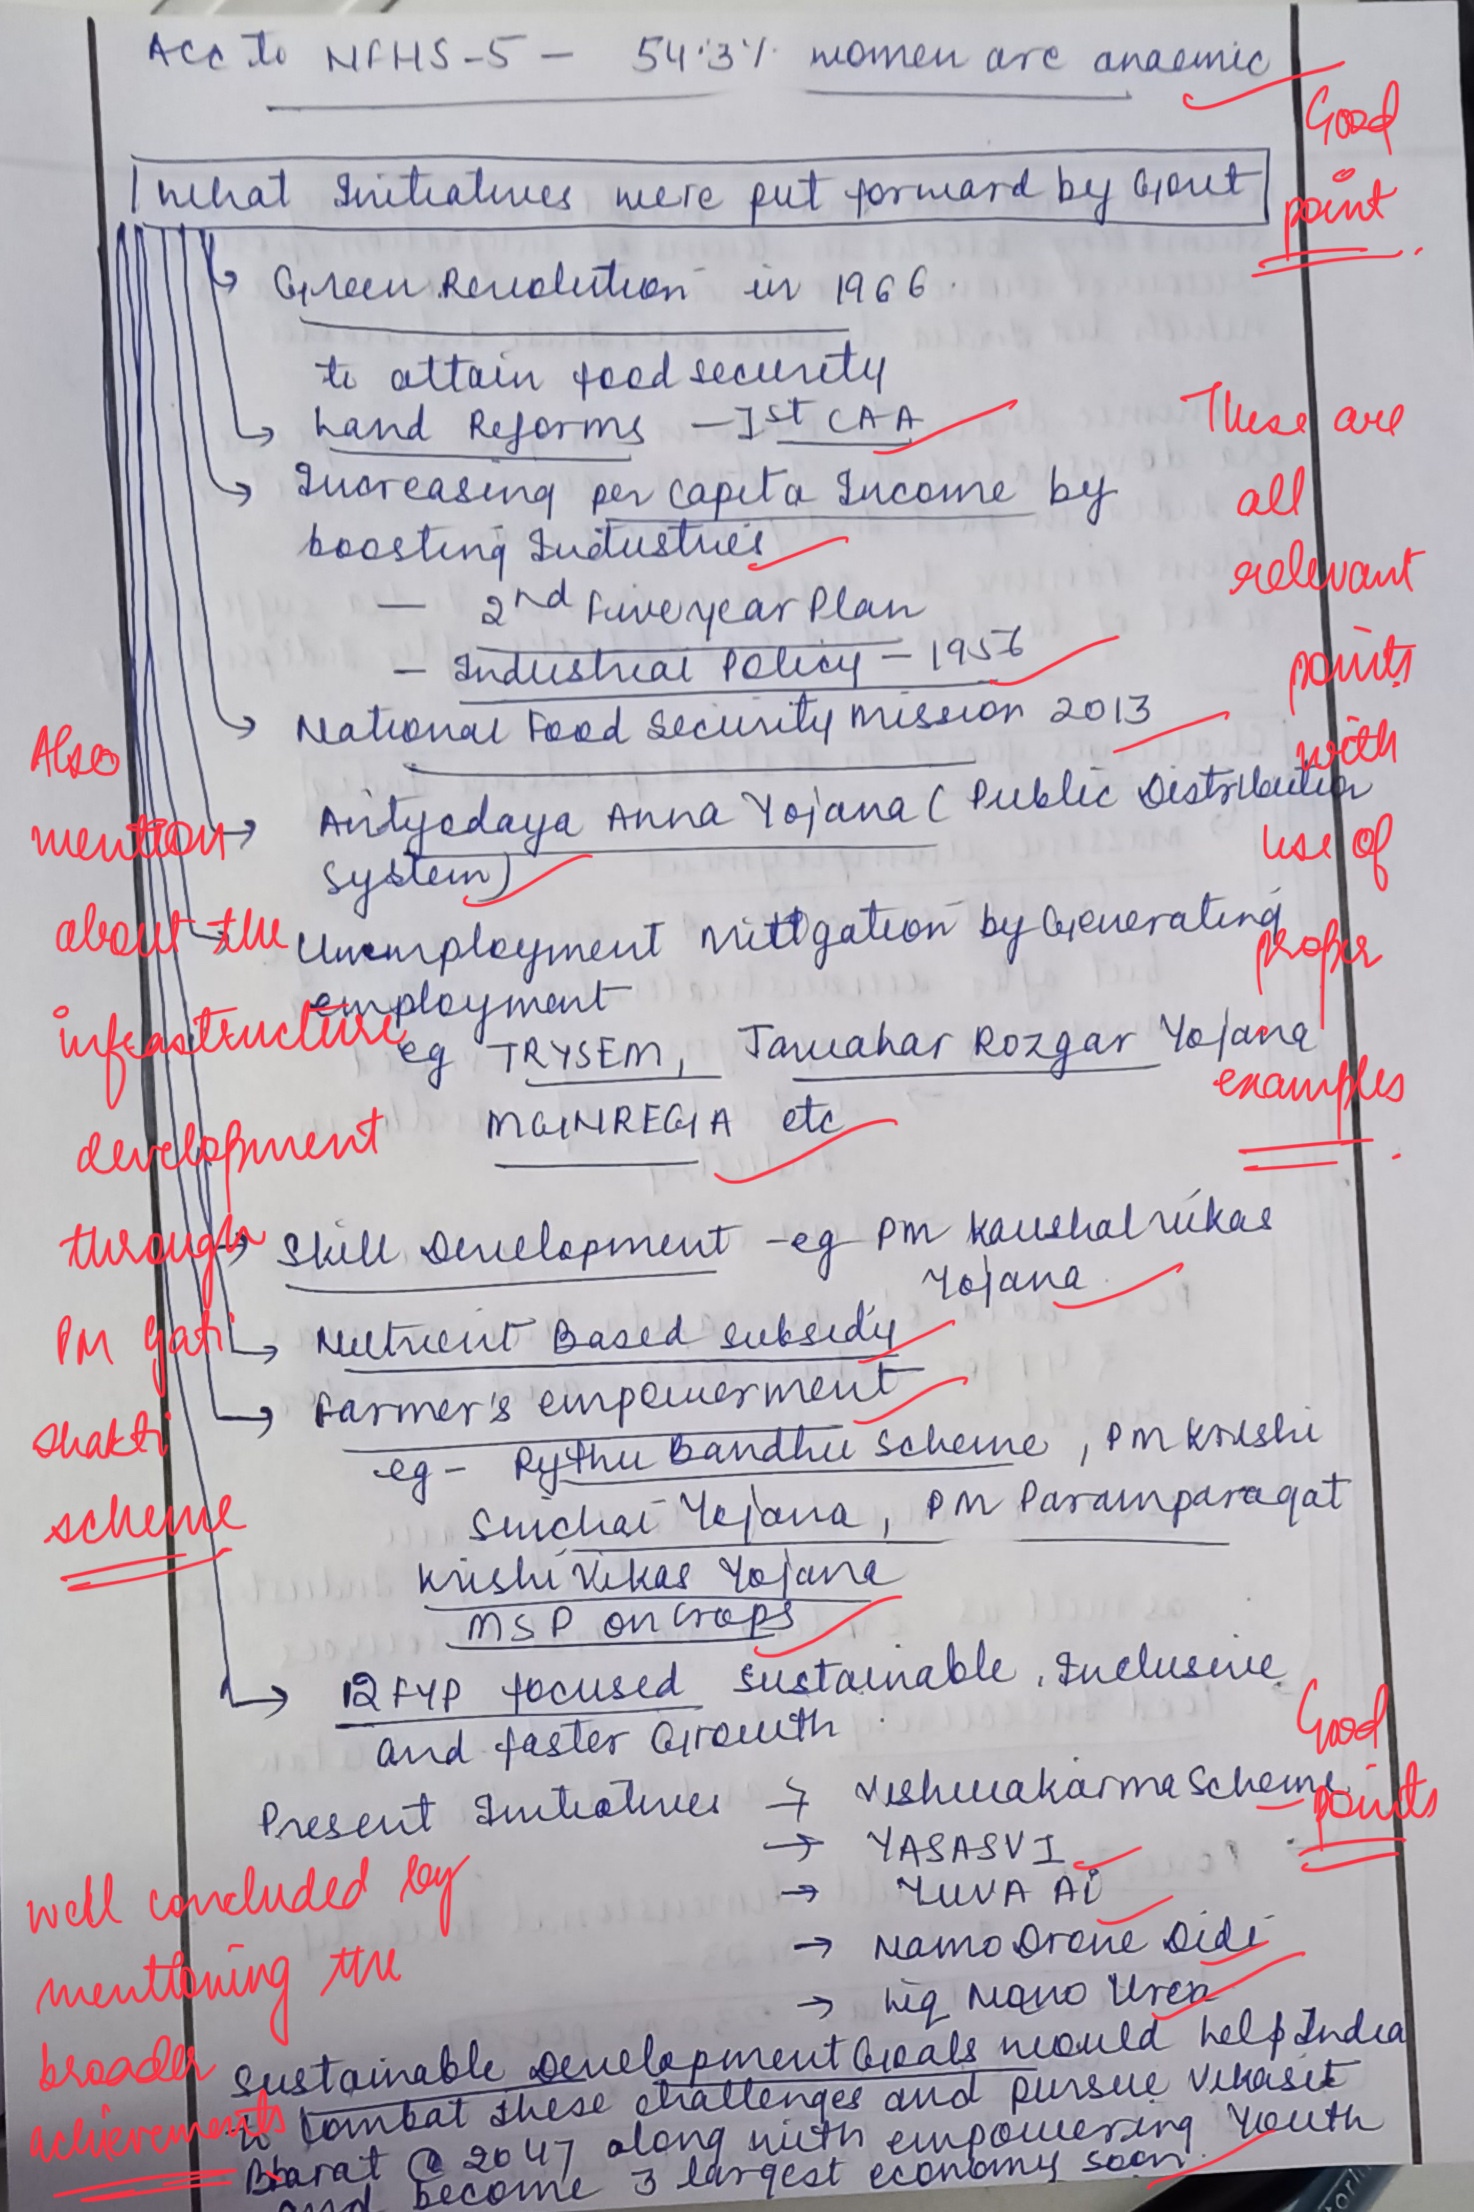 Acc to NFHS-5 - 54.3% women are anaemic
Good
point.
What Initiatives were put forward by Govt
Green Revolution in 1966.
to attain food security
Land Reforms - Ist CAA
Increasing per capita Income by
boosting Industries
- 2nd Five year Plan
- Industrial Policy - 1956
National Food Security Mission 2013
Antyodaya Anna Yojana (Public Distribution
System)
These are
all
relevant
points
with
use of
proper
examples.
Unemployment Mitigation by Generating
employment
eg TRYSEM, Jawahar Rozgar Yojana
MGNREGA etc
Also
mention
about the
infrastructure
development
through
PM Gati
Shakti
scheme
Skill Development - eg PM Kaushal Vikas
Yojana
Nutrient Based subsidy
Farmer's empowerment
eg - Rythu Bandhu Scheme, PM Krishi
Sinchai Yojana, PM Paramparagat
Krishi Vikas Yojana
MSP on Crops
12 FYP focused Sustainable, Inclusive
and faster Growth.
Good
points
Present Initiatives → Vishwakarma Scheme
→ YASASVI
→ YUVA Ai
→ Namo Drone Didi
→ Liq Nano Urea
well concluded by
mentioning the
broader
achievements
Sustainable Development Goals would help India
to combat these challenges and pursue Vikasit
Bharat @ 2047 along with empowering Youth
and become 3 largest economy soon.